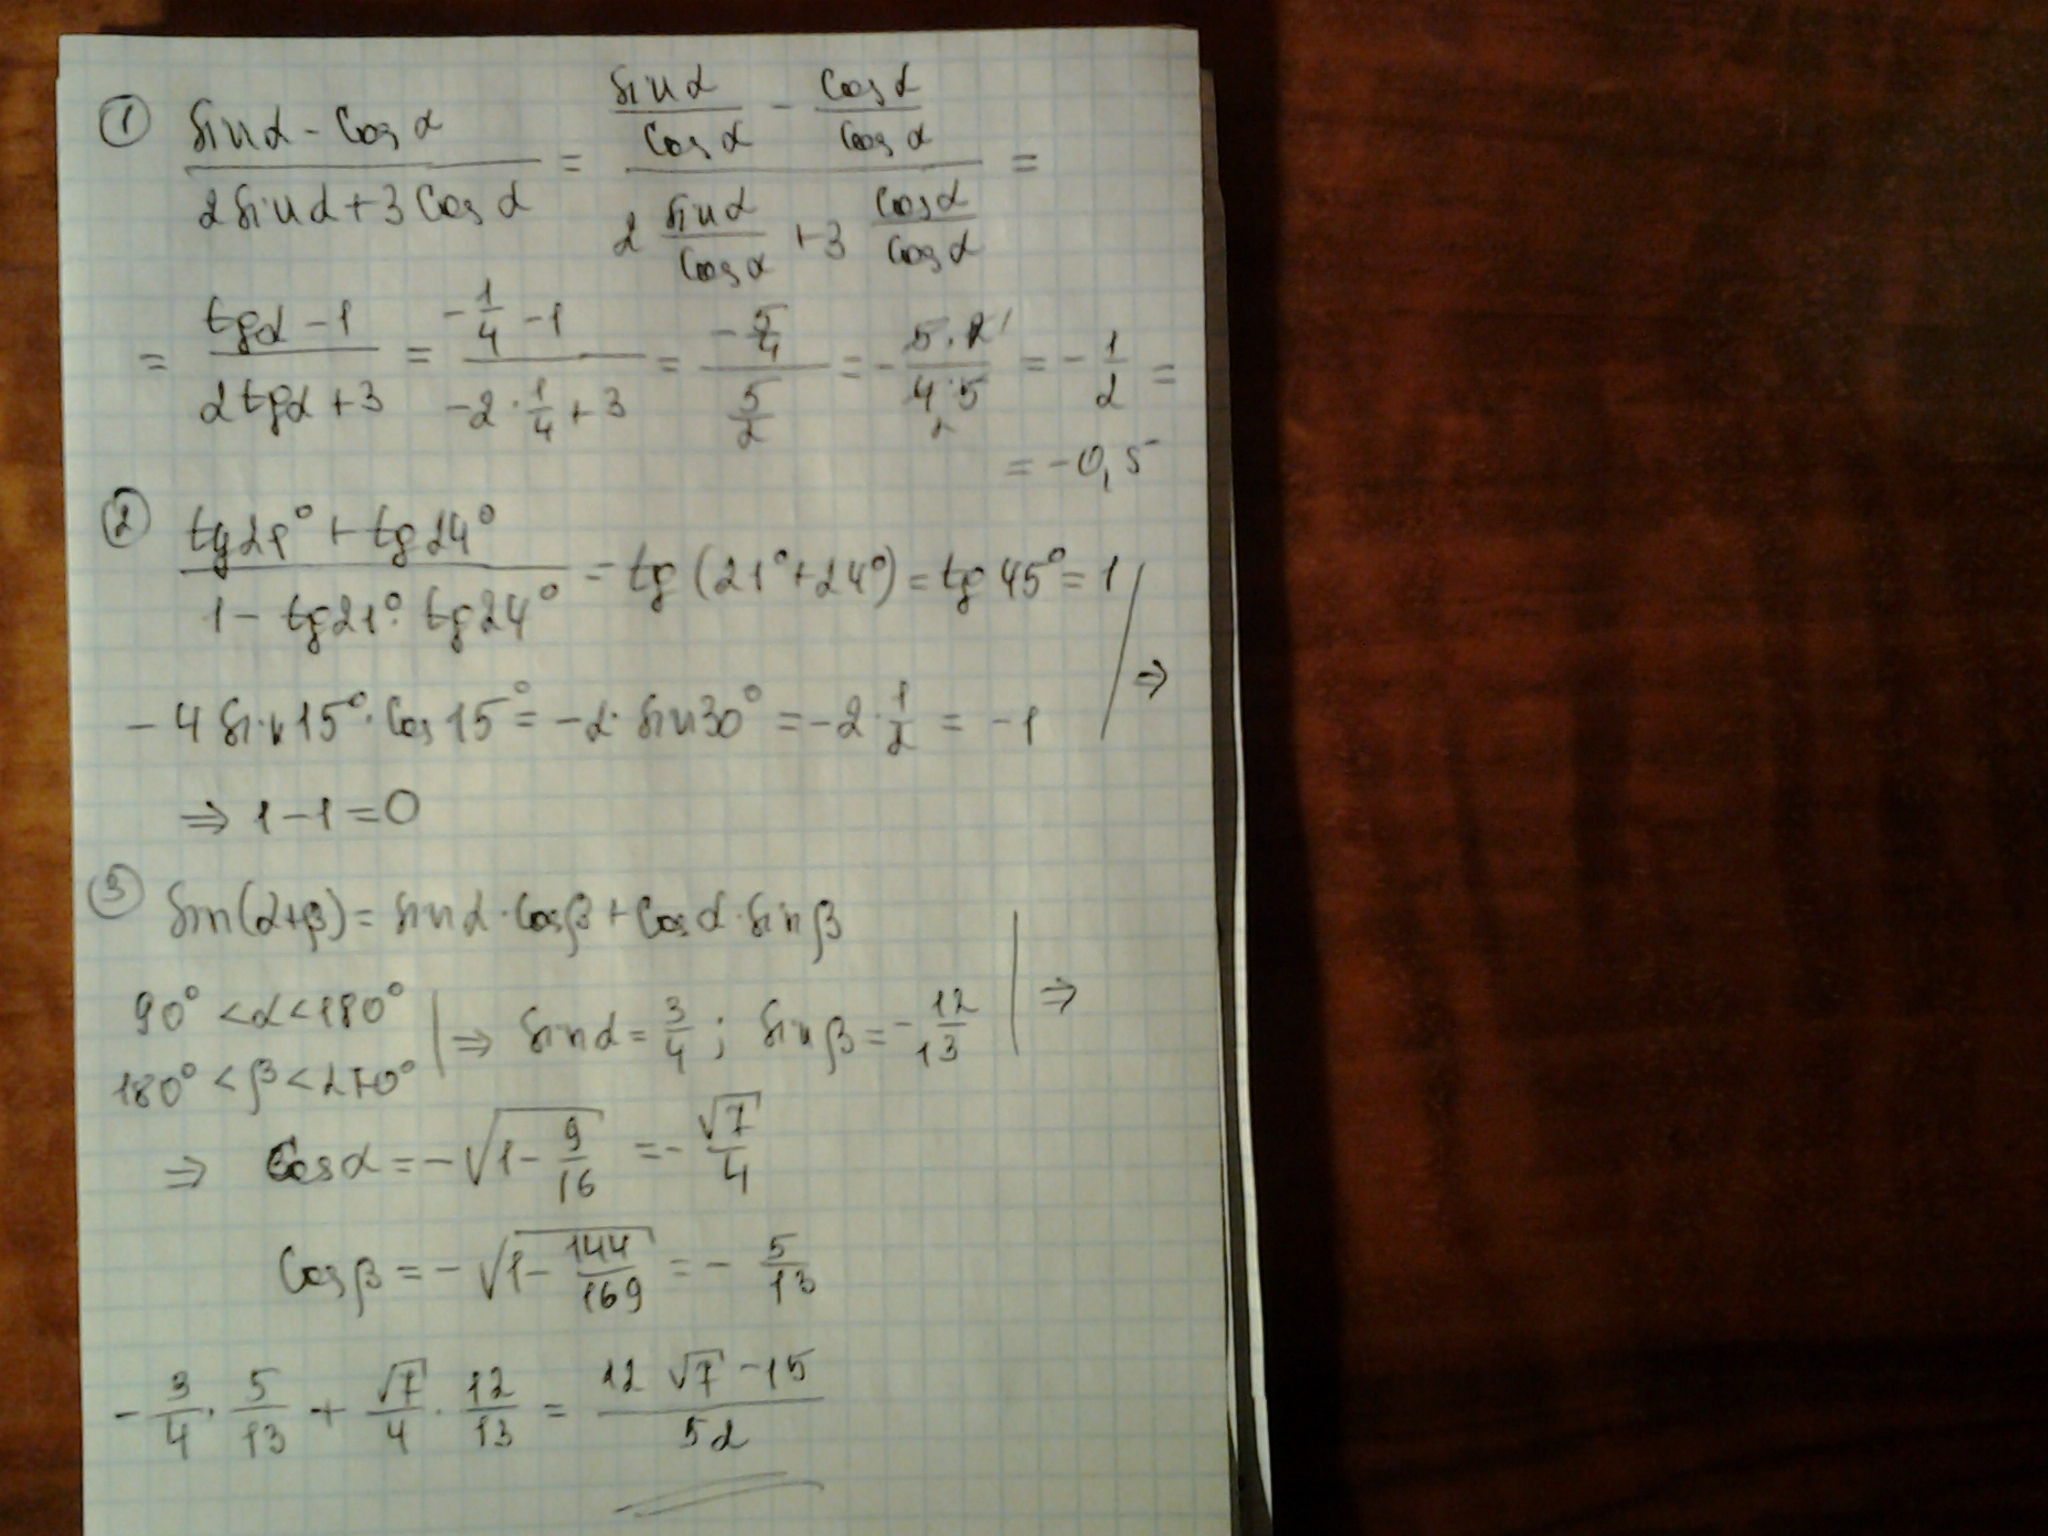 ① (sinα - cosα)/(2sinα + 3cosα) = (sinα/cosα - cosα/cosα)/(2 sinα/cosα + 3 cosα/cosα) =
= (tgα - 1)/(2tgα + 3) = (-1/4 - 1)/(-2·1/4 + 3) = (-5/4)/(5/2) = -(5·2)/(4·5) = -1/2 =
= -0,5
② (tg21° + tg24°)/(1 - tg21°·tg24°) = tg(21°+24°) = tg45° = 1
- 4sin15°·cos15° = -2·sin30° = -2·1/2 = -1 ⇒
⇒ 1-1=0
③ sin(α+β) = sinα·cosβ + cosα·sinβ
90° < α < 180°
180° < β < 270° ⇒ sinα = 3/4 ; sinβ = -12/13 ⇒
⇒ cosα = -√(1 - 9/16) = -√7/4
cosβ = -√(1 - 144/169) = -5/13
-3/4 · 5/13 + √7/4 · 12/13 = (12√7 - 15)/52